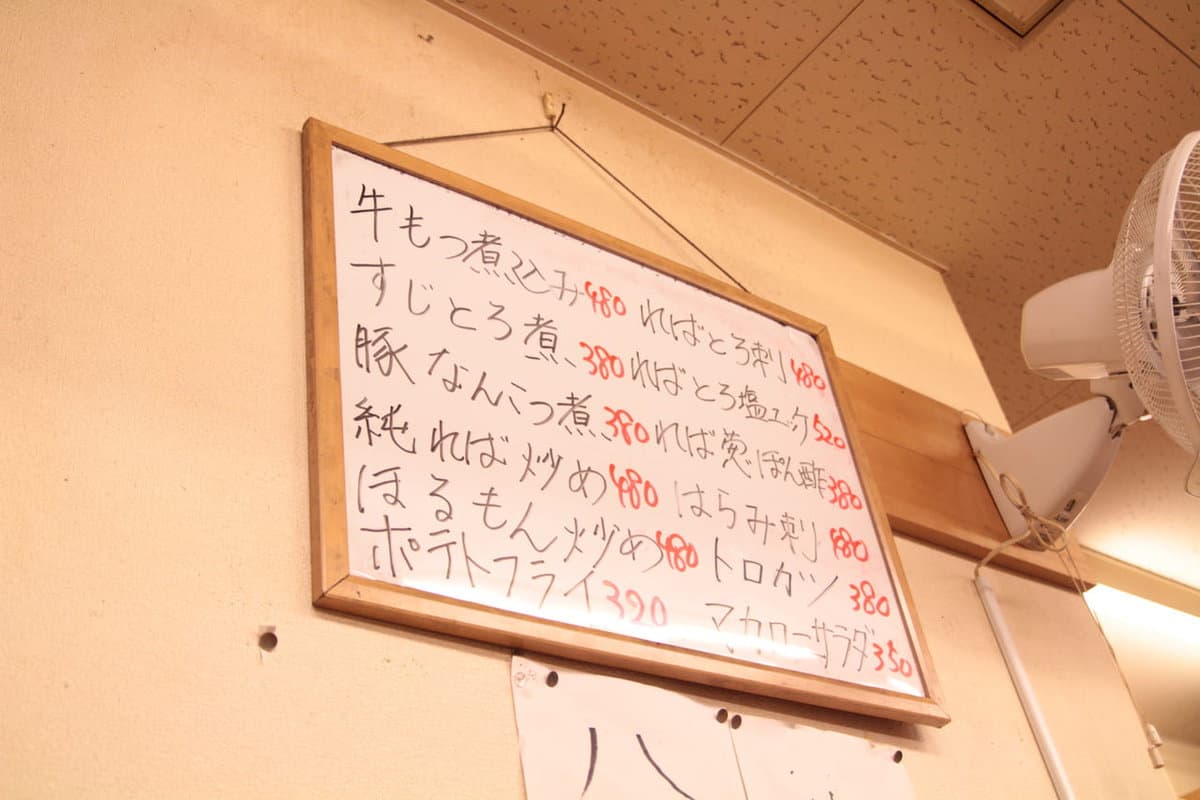 牛もつ煮込み480 ればとろ刺480
すじとろ煮、380 ればとろ塩ユッケ520
豚なんこつ煮、380 れば葱ぽん酢380
純れば炒め480 はらみ刺480
ほるもん炒め480 トロガツ380
ポテトフライ390 マカローサラダ350